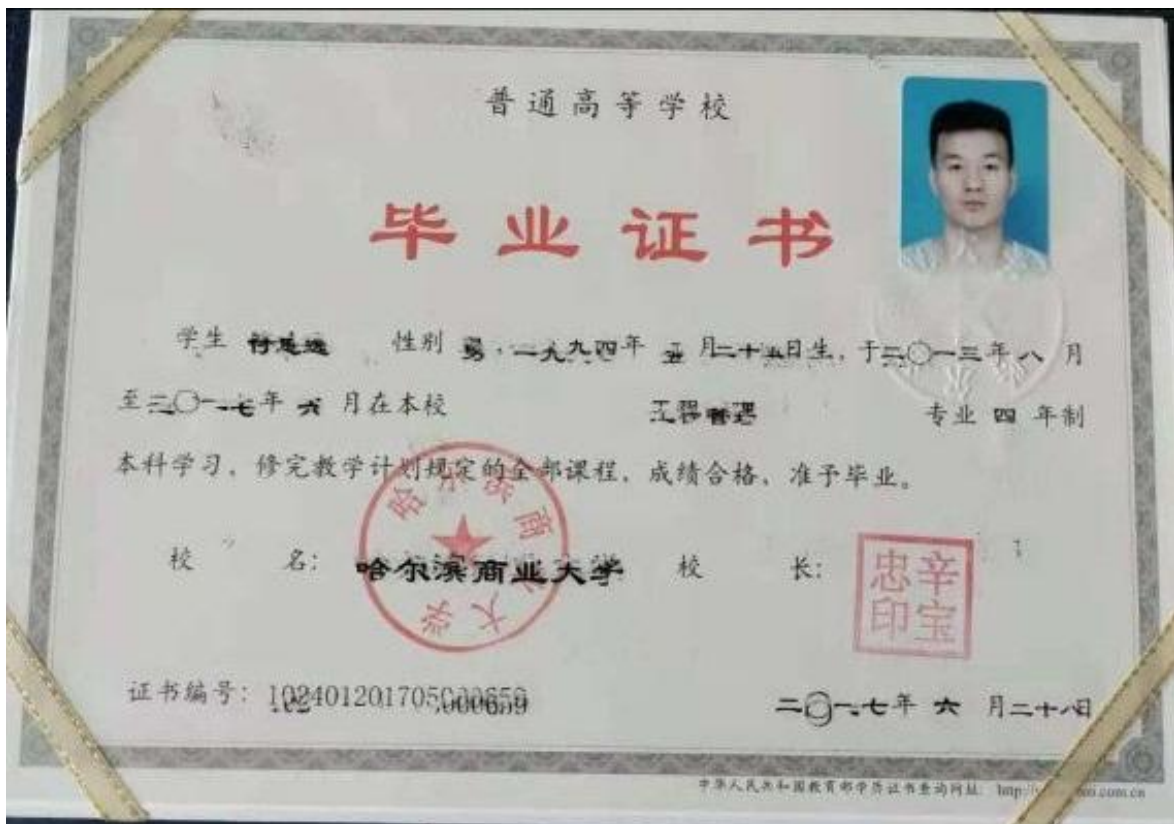 普通高等学校
毕业证书
学生 性别 男，一九九四年 五 月二十五日生，于二〇一三年 八 月
至二〇一七年 六 月在本校 工程管理 专业 四 年制
本科学习，修完教学计划规定的全部课程，成绩合格，准予毕业。
校 名： 哈尔滨商业大学 校 长：
哈尔滨商业大学
辛宝忠印
证书编号：102401201705000659
二〇一七年 六 月二十八日
中华人民共和国教育部学历证书查询网址： http://